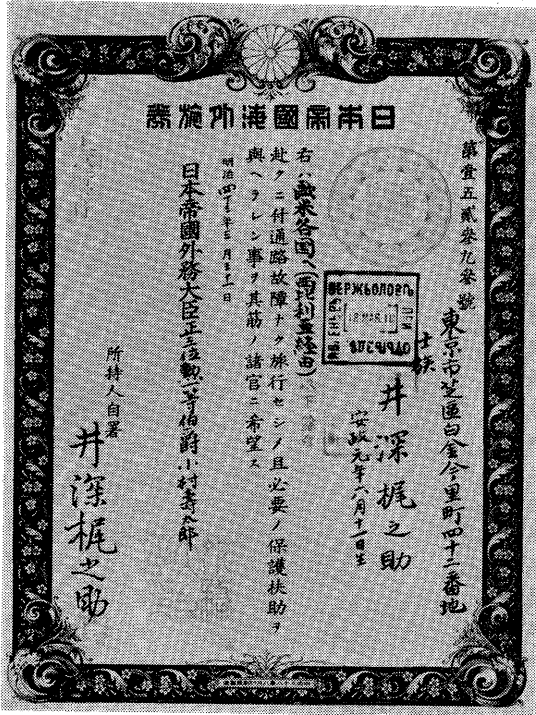 日本帝國海外旅券
第壹五貳叄九叄號
東京市芝區白金今里町四十二番地
士族
井深梶之助
安政元年六月十一日生
右ハ歐米各国ヘ(西比利亜経由)
赴クニ付通路故障ナク旅行セシメ且必要ノ保護扶助ヲ
與ヘラレン事ヲ其筋ノ諸官ニ希望ス
日本帝國外務大臣正三位勲一等伯爵小村壽太郎
所持人自署
井深梶之助